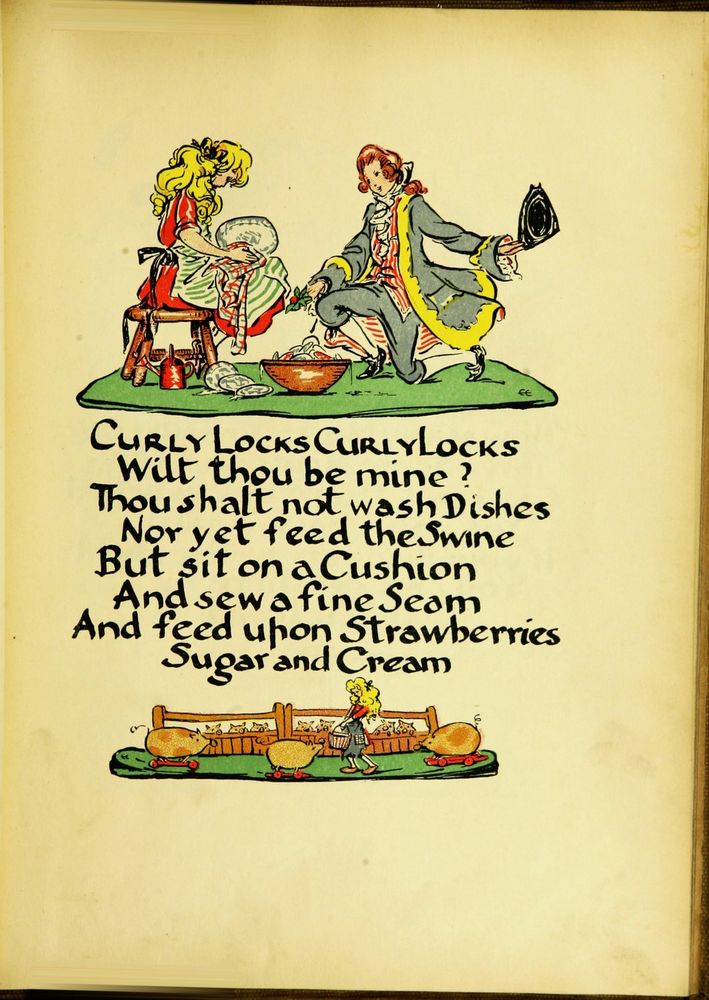 CURLY LOCKS CURLY LOCKS
Wilt thou be mine?
Thou shalt not wash Dishes
Nor yet feed the Swine
But sit on a Cushion
And sew a fine Seam
And feed upon Strawberries
Sugar and Cream